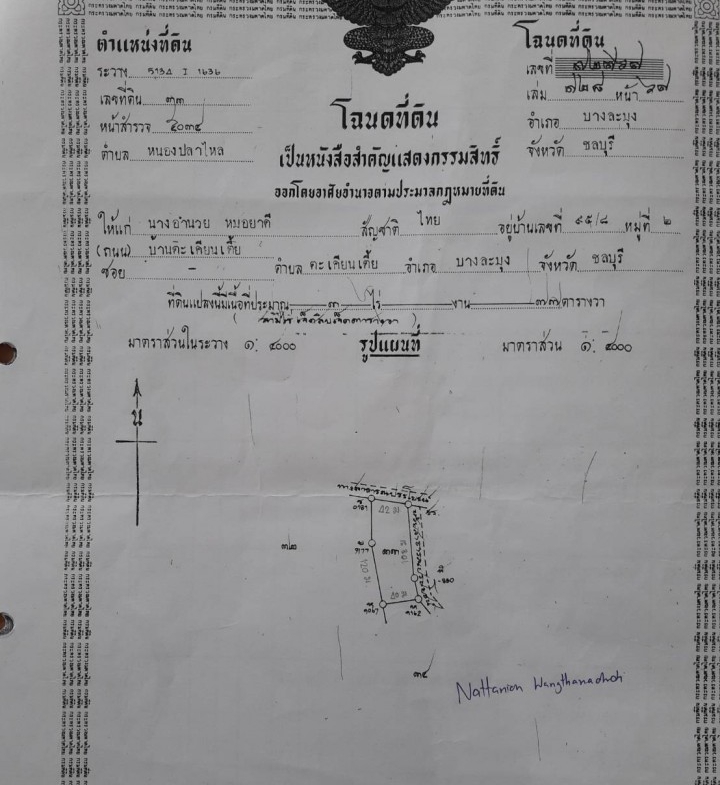 ตำแหน่งที่ดิน
ระวาง 5134 I 1636
เลขที่ดิน ๓๓
หน้าสำรวจ ๕๐๓๕
ตำบล หนองปลาไหล
โฉนดที่ดิน
เลขที่
เล่ม ๑๒๘ หน้า ๖๗
อำเภอ บางละมุง
จังหวัด ชลบุรี
โฉนดที่ดิน
เป็นหนังสือสำคัญแสดงกรรมสิทธิ์
ออกโดยอาศัยอำนาจตามประมวลกฎหมายที่ดิน
ให้แก่ นางอำนวย หมอยาดี สัญชาติ ไทย อยู่บ้านเลขที่ ๙๕/๘ หมู่ที่ ๒
(ถนน) บ้านตะเคียนเตี้ย
ซอย - ตำบล ตะเคียนเตี้ย อำเภอ บางละมุง จังหวัด ชลบุรี
ที่ดินแปลงนี้มีเนื้อที่ประมาณ ๓ ไร่ งาน ๗๗ ตารางวา
(สามไร่เจ็ดสิบเจ็ดตารางวา)
มาตราส่วนในระวาง ๑: ๔๐๐๐ รูปแผนที่ มาตราส่วน ๑: ๔๐๐๐
น
ทางสาธารณประโยชน์
ทางสาธารณประโยชน์
๓๒
๓๓
๓๔
Nattanion Wangthanadhoti